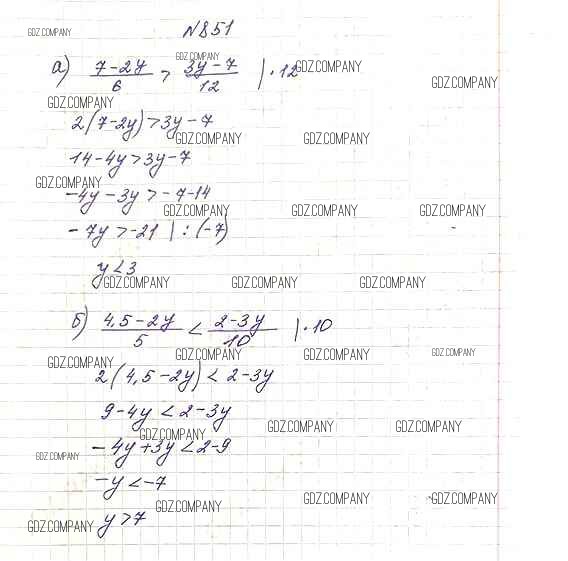 N851
GDZ.COMPANY
а) (7-2y)/6 > (3y-7)/12 | ·12
GDZ.COMPANY GDZ.COMPANY GDZ.COMPANY
GDZ.COMPANY
2(7-2y)>3y-7
GDZ.COMPANY GDZ.COMPANY
14-4y>3y-7
GDZ.COMPANY
-4y-3y>-7-14
GDZ.COMPANY GDZ.COMPANY GDZ.COMPANY
-7y>-21 | :(-7)
y<3
GDZ.COMPANY GDZ.COMPANY GDZ.COMPANY
б) (4,5-2y)/5 < (2-3y)/10 | ·10
GDZ.COMPANY GDZ.COMPANY GDZ.COMPANY GDZ.COMPANY
2(4,5-2y)<2-3y
9-4y<2-3y
GDZ.COMPANY GDZ.COMPANY GDZ.COMPANY
-4y+3y<2-9
GDZ.COMPANY
-y<-7
GDZ.COMPANY GDZ.COMPANY GDZ.COMPANY
y>7
GDZ.COMPANY